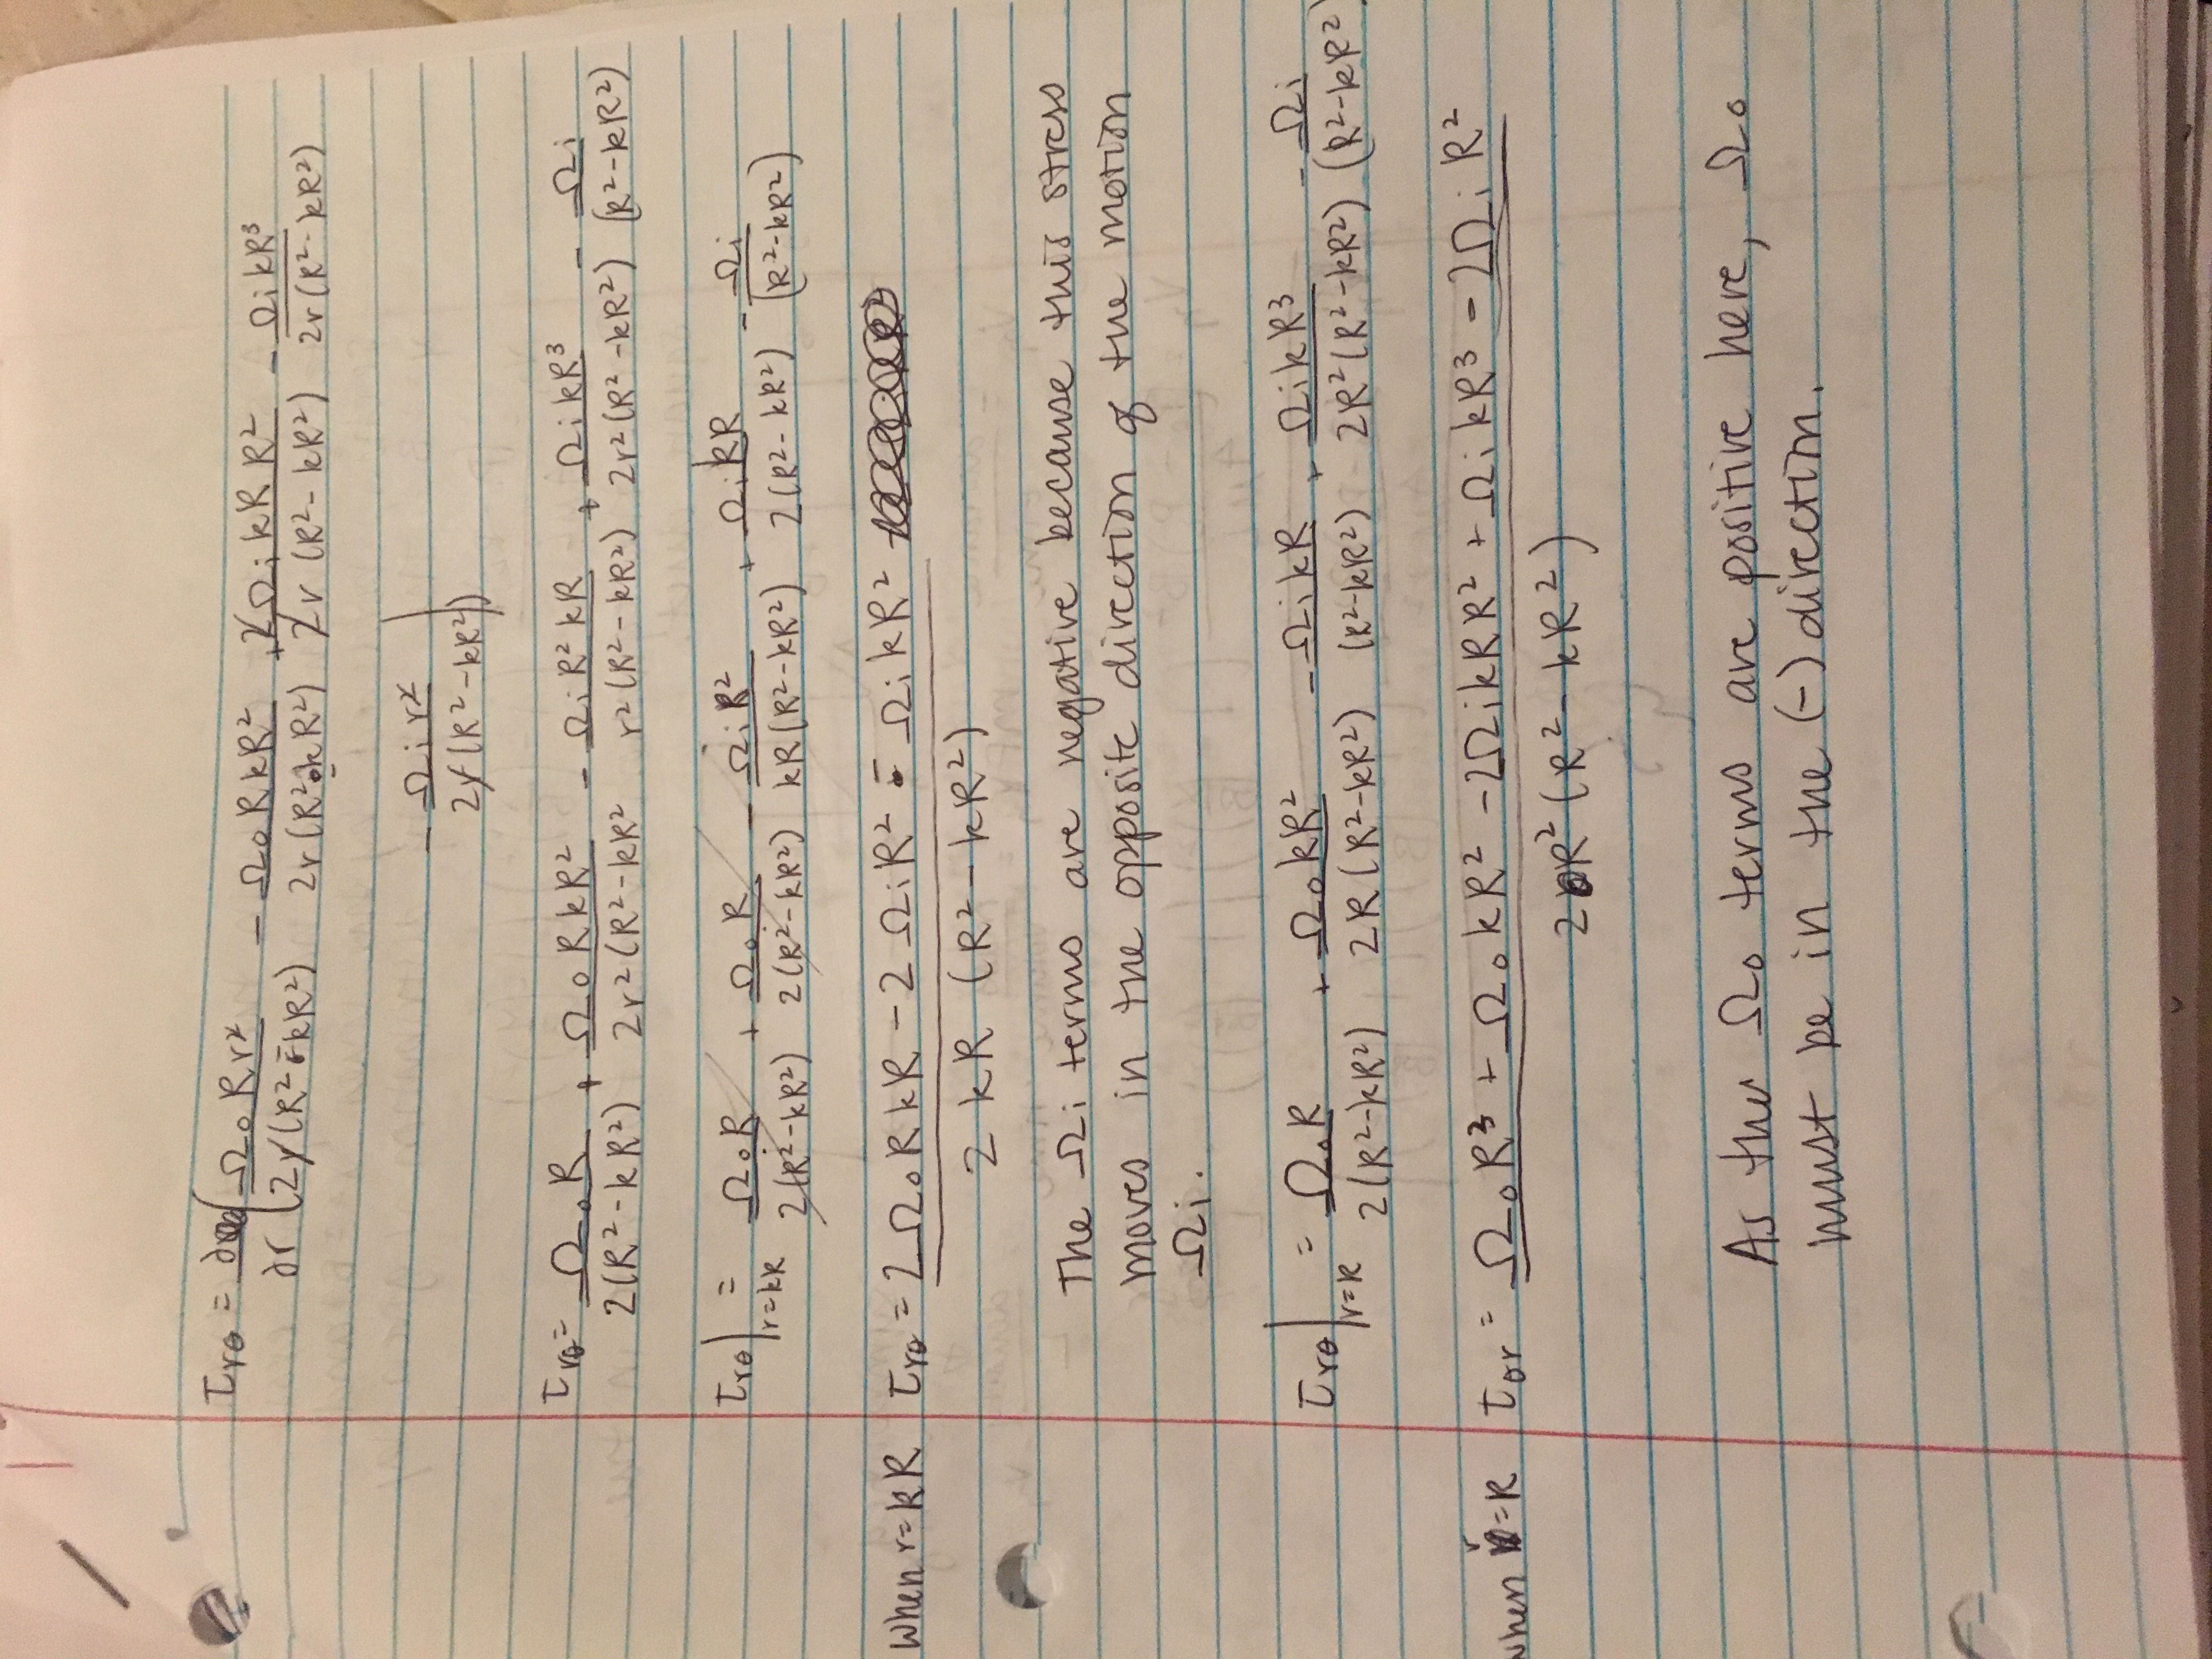 τrθ = ∂/∂r ( ΩoRr²/2r(R²-kR²) - ΩoRkR²/2r(R²-kR²) + 2ΩikRR²/2r(R²-kR²) - ΩikR³/2r(R²-kR²)
- Ωir²/2r(R²-kR²) )
τrθ = ΩoR/2(R²-kR²) + ΩoRkR²/2r²(R²-kR² - ΩiR²kR/r²(R²-kR²) + ΩikR³/2r²(R²-kR²) - Ωi/(R²-kR²)
τrθ|r=kR = ΩoR/2(R²-kR²) + ΩoR/2(R²-kR²) - ΩiR²/kR(R²-kR²) + ΩikR/2(R²-kR²) - Ωi/(R²-kR²)
When r=kR τrθ = 2ΩoRkR - 2ΩiR² - ΩikR² / 2kR (R²-kR²)
The Ωi terms are negative because this stress
moves in the opposite direction of the motion
Ωi.
τrθ|r=R = ΩoR/2(R²-kR²) + ΩokR²/2R(R²-kR²) - ΩikR/(R²-kR²) + ΩikR³/2R²(R²-kR²) - Ωi/(R²-kR²)
when r=R τθr = ΩoR³ + ΩokR² - 2ΩikRR² + ΩikR³ - 2ΩiR² / 2R²(R²-kR²)
As the Ωo terms are positive here, Ωo
must be in the (-) direction.